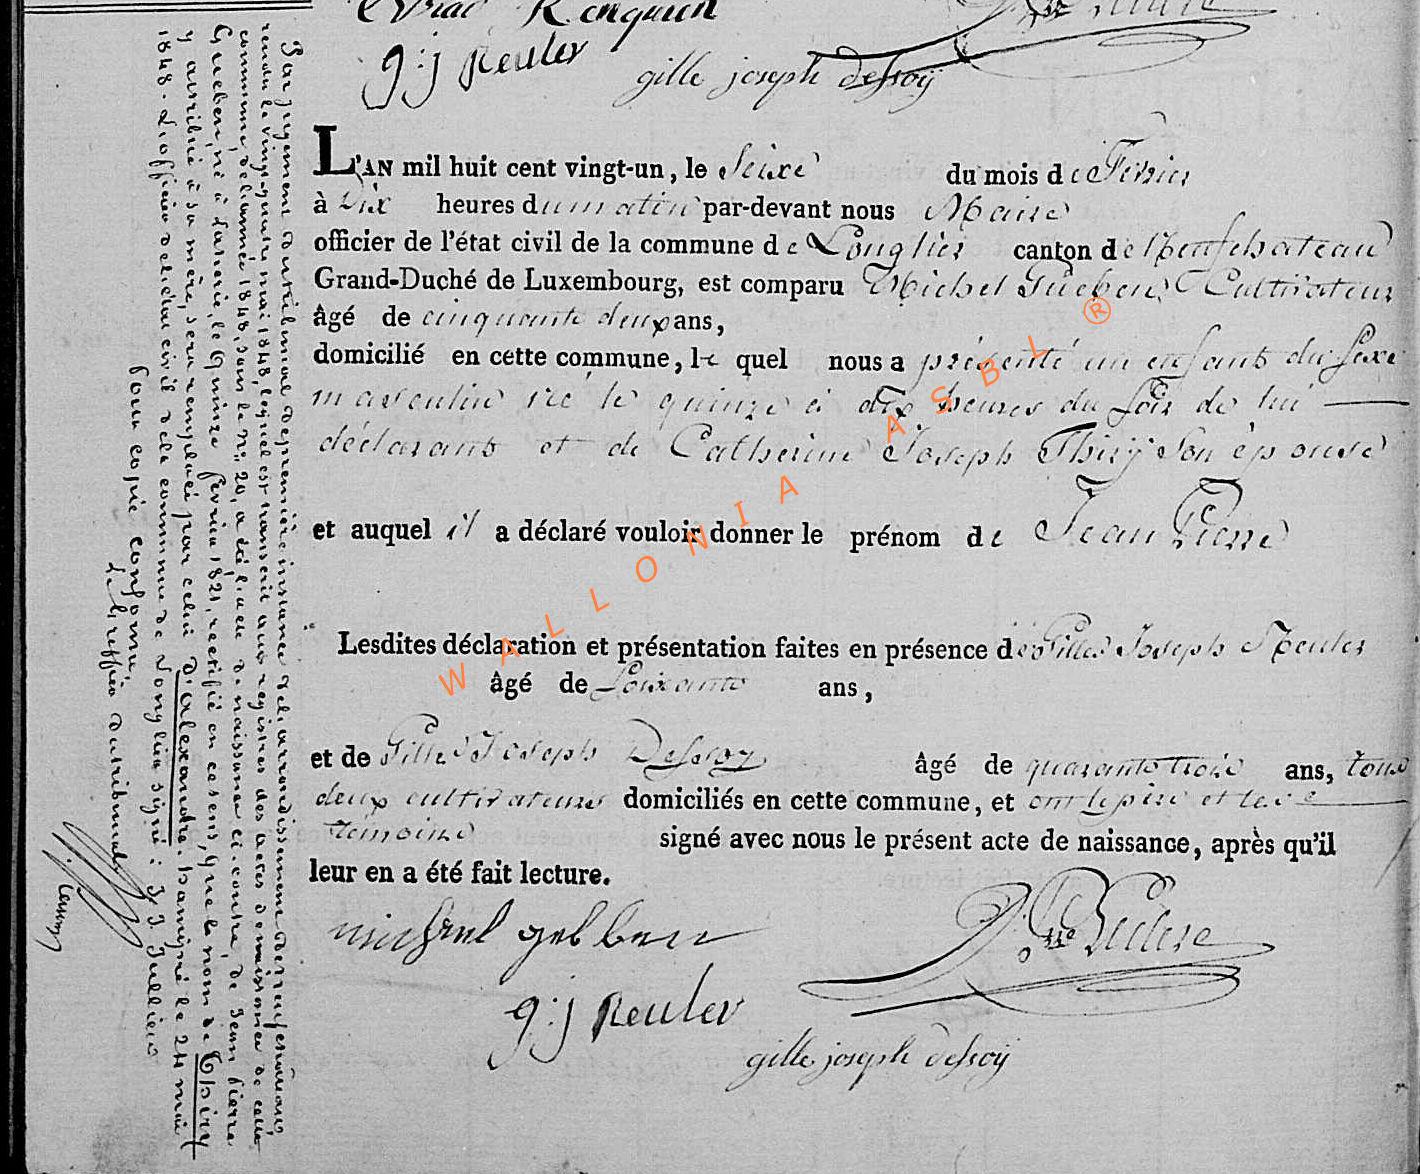 g:j Reuler
gille joseph dessoÿ
L'AN mil huit cent vingt-un, le Seize du mois de Fevrier
à Dix heures du matin par-devant nous Maire
officier de l'état civil de la commune de Longlier canton de Neufchateau
Grand-Duché de Luxembourg, est comparu Michel Gueben, Cultivateur
âgé de cinquante deux ans,
domicilié en cette commune, le quel nous a présenté un enfant du sexe
masculin né le quinze à dix heures du soir de lui
déclarant et de Catherine Joseph Thiry son épouse
et auquel il a déclaré vouloir donner le prénom de Jean Pierre
Lesdites déclaration et présentation faites en présence de Gille Joseph Reuler
âgé de Soixante ans,
et de Gille Joseph Dessoy âgé de quarante trois ans, tous
deux cultivateurs domiciliés en cette commune, et ont le père et les
témoins signé avec nous le présent acte de naissance, après qu'il
leur en a été fait lecture.
michel gebben
g:j Reuler
gille joseph dessoÿ
Par jugement du tribunal de première instance de l'arrondissement de neufchâteau
rendu le vingt-quatre mai 1848, lequel est transcrit aux registres des actes de naissance de cette
commune, de l'année 1848, sous le N° 20, a été, l'acte de naissance ci-contre, de Jean Pierre
Gueben, né à Lahérie, le quinze février 1821, rectifié en ce sens, que le nom de Thiry
y attribué à sa mère, sera remplacé par celui D'alexandre. Par nous le 24 mai
1848. L'officier de l'état civil de la commune de Longlier signé: J. J. Jullien
Pour copie conforme,
Le Greffier du tribunal,
WALLONIA ASBL ®